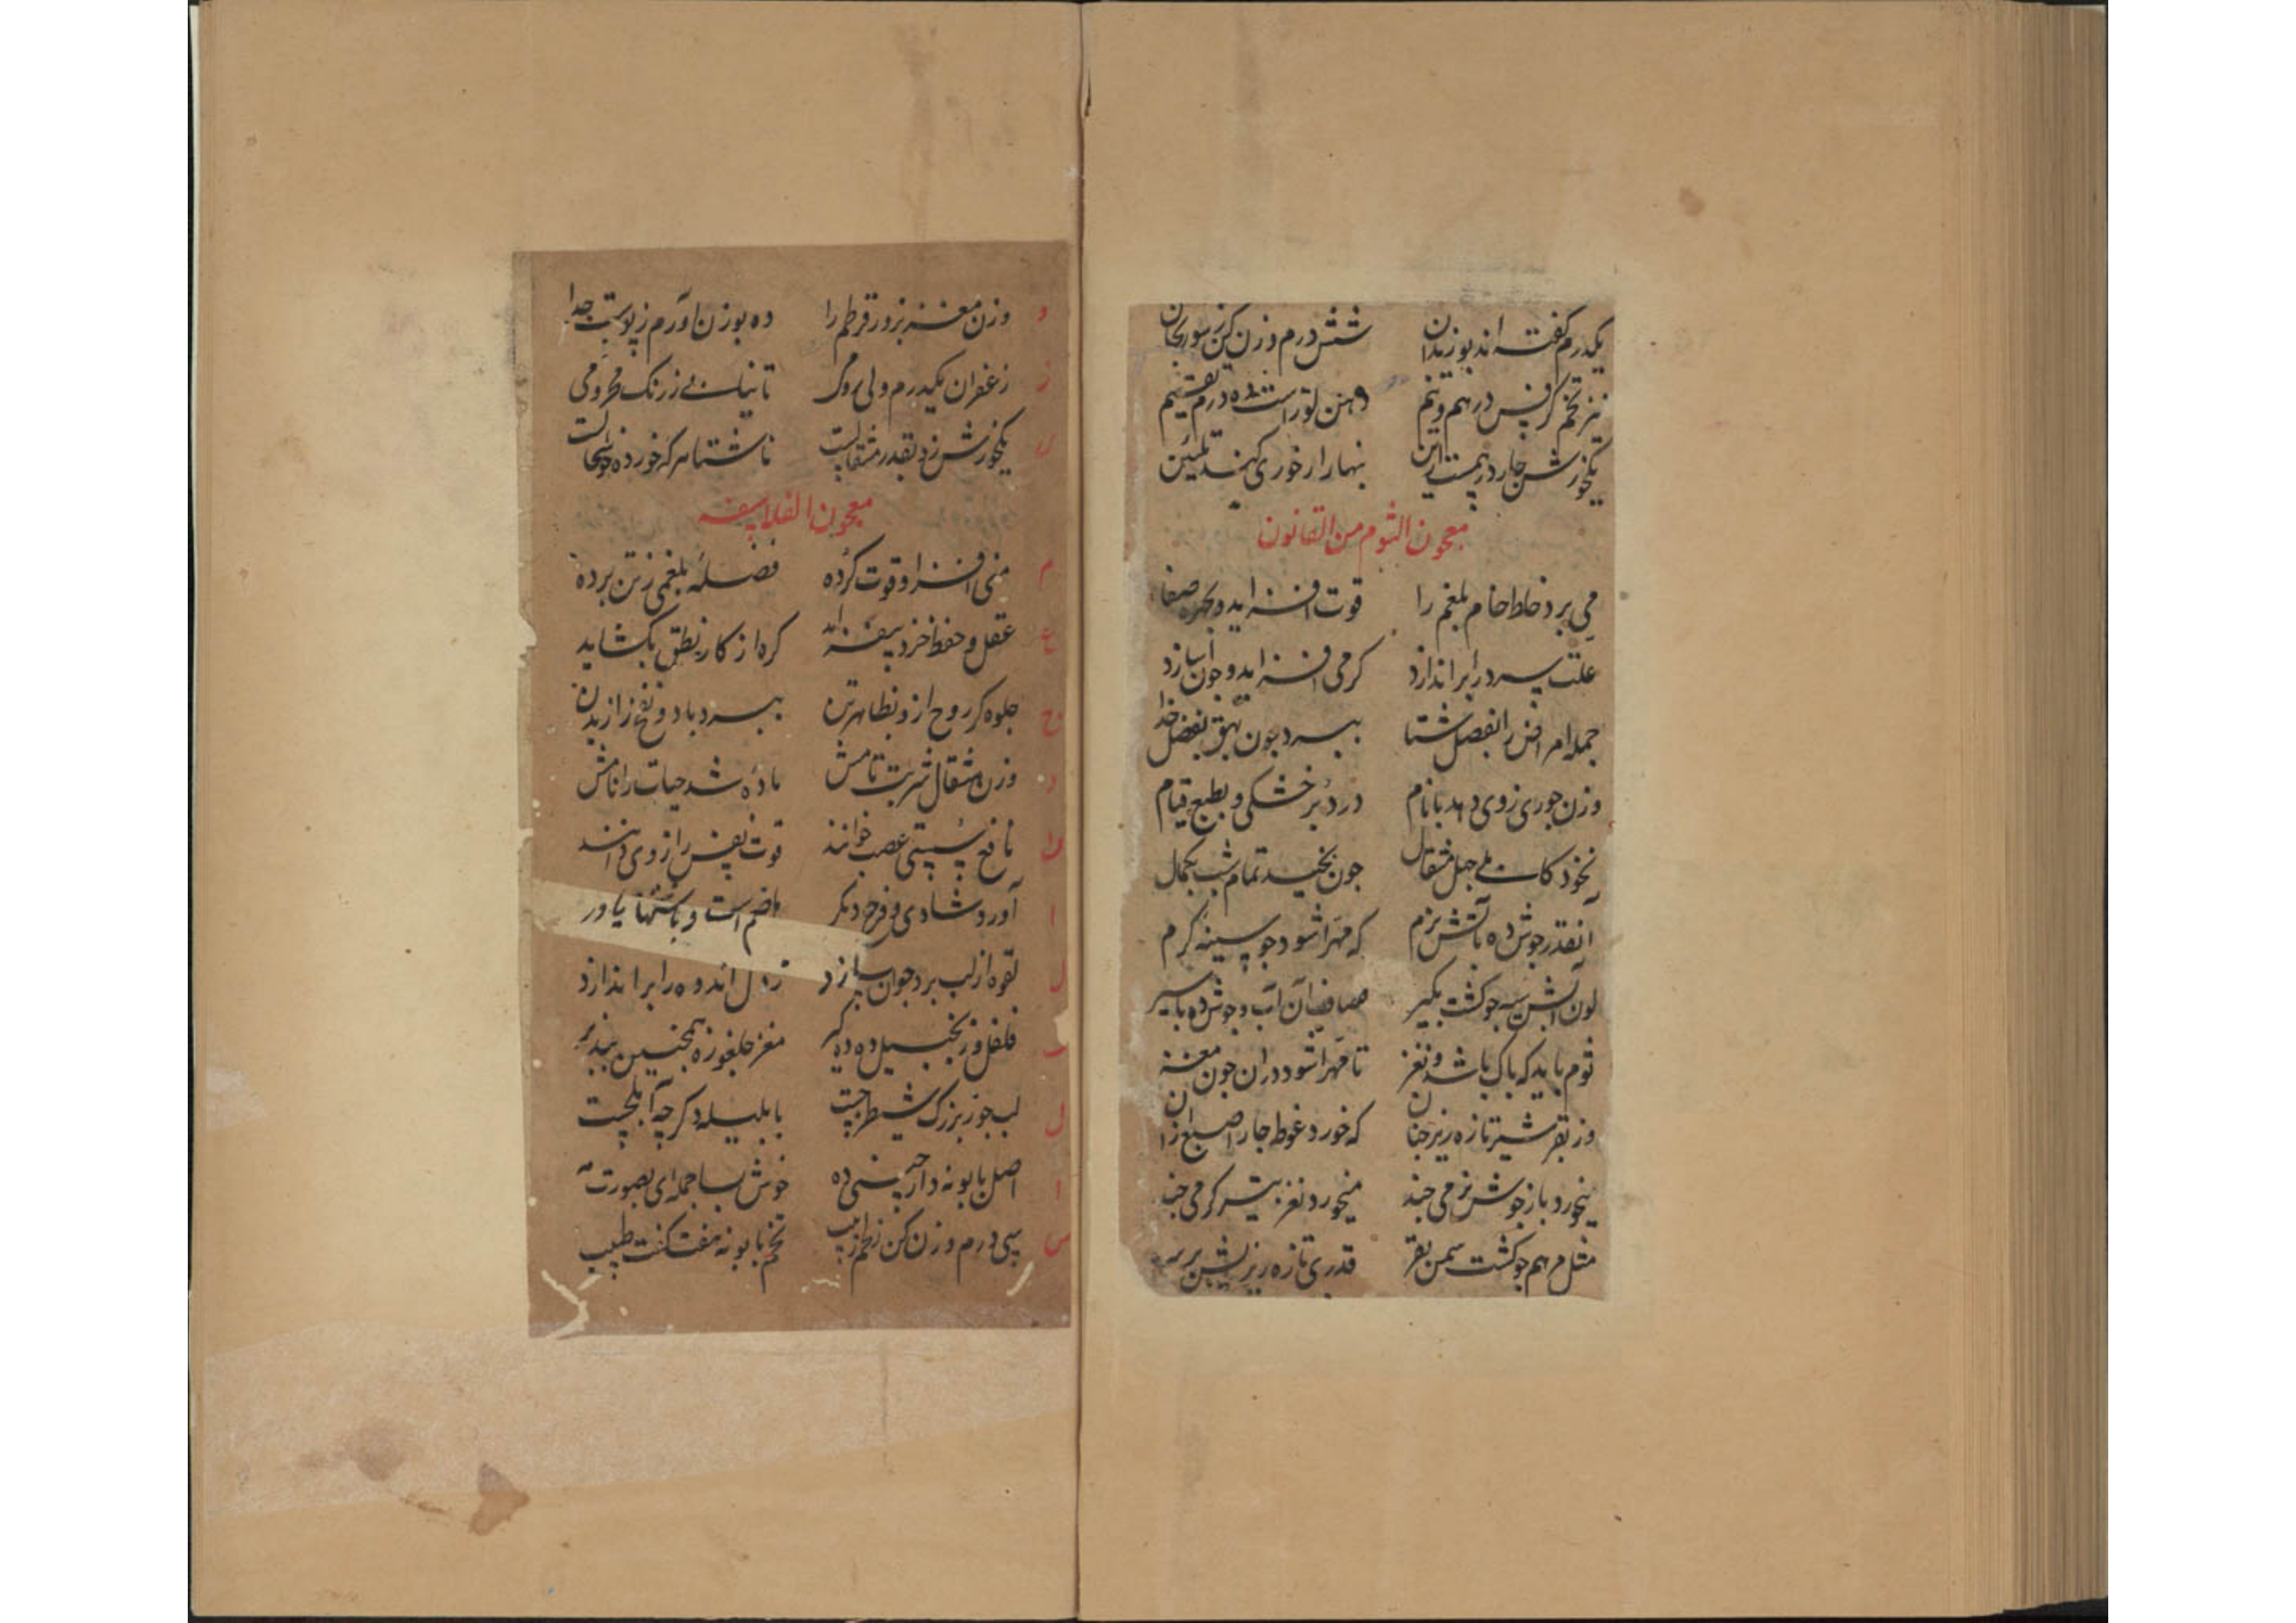 یکدرم گفته اند بوزیدان شش درم وزن کن زسورنجان
نیز تخم کرفس درهم و نیم دهن لوز است ده درم تقسیم
یکخورش چار درهمست از این بنهار ار خوری کند تلیین
معجون الثوم من القانون
می برد خلط خام بلغم را قوت افزاید و بچهره صفا
علت سرد را براندازد کرمی افزاید و جوان سازد
جمله امراض را بفصل شتا ببرد چون بهق بفضل خدا
وزن جوزی زوی دهد با نام در
نخود کابلی چهل مثقال چون بخیسد تمام شب بکمال
آنقدر جوش ده بآتش نرم که مهرا شود چو سینه کرم
لون آبش سیه چو کشت بکیر صاف آن آب و جوش ده با سیر
ثوم باید که پاک باشد و نغز تا مهرا شود دران چون مغز
وز بقر شیر تازه ریز چنان که خورد غوطه چار اصبع زان
بخورد باز جوش نرمی چند
مثل مرهم چو کشت سمن بقر قدری تازه ریزیش بر سر
و وزن مغز بزور قرطم را ده بوزن آورم زپوست جدا
ز زعفران یکدرم ولی رومی تا نیابی زرنک محرومی
س یکخورش زو بقدر مثقالست ناشتا هر که خورده خوشحالست
معجون الفلاسفه
م منی افزا و قوت کرده فضله بلغمی زتن برده
ع عقل و حفظ خرد بیفزاید کره از کار نطق بکشاید
ج جلوه کر روح ازو بظاهر تن ببرد باد و نفخ را ز بدن
و وزن مثقال شربت تامش باده شد حیات را نامش
ن نافع سستی عصب خوانند قوت نفس را ز وی دانند
ا آورد شادی و فرح دیکر هاضم است و باشتها یاور
ل لقوه از لب برد جوان سازد ز دل اندوه را براندازد
ف فلفل و زنجبیل ده ده کیر مغز چلغوزه همچنین بپذیر
ل لب جوز بزرک شیطرج با بلیله دکر چه آملجست
ا اصل بابونه دارچینی ده خوش بسا جمله ای بصورت مه
س سی درم وزن کن زلحم زبیب تخم بابونه هفت کفت طبیب